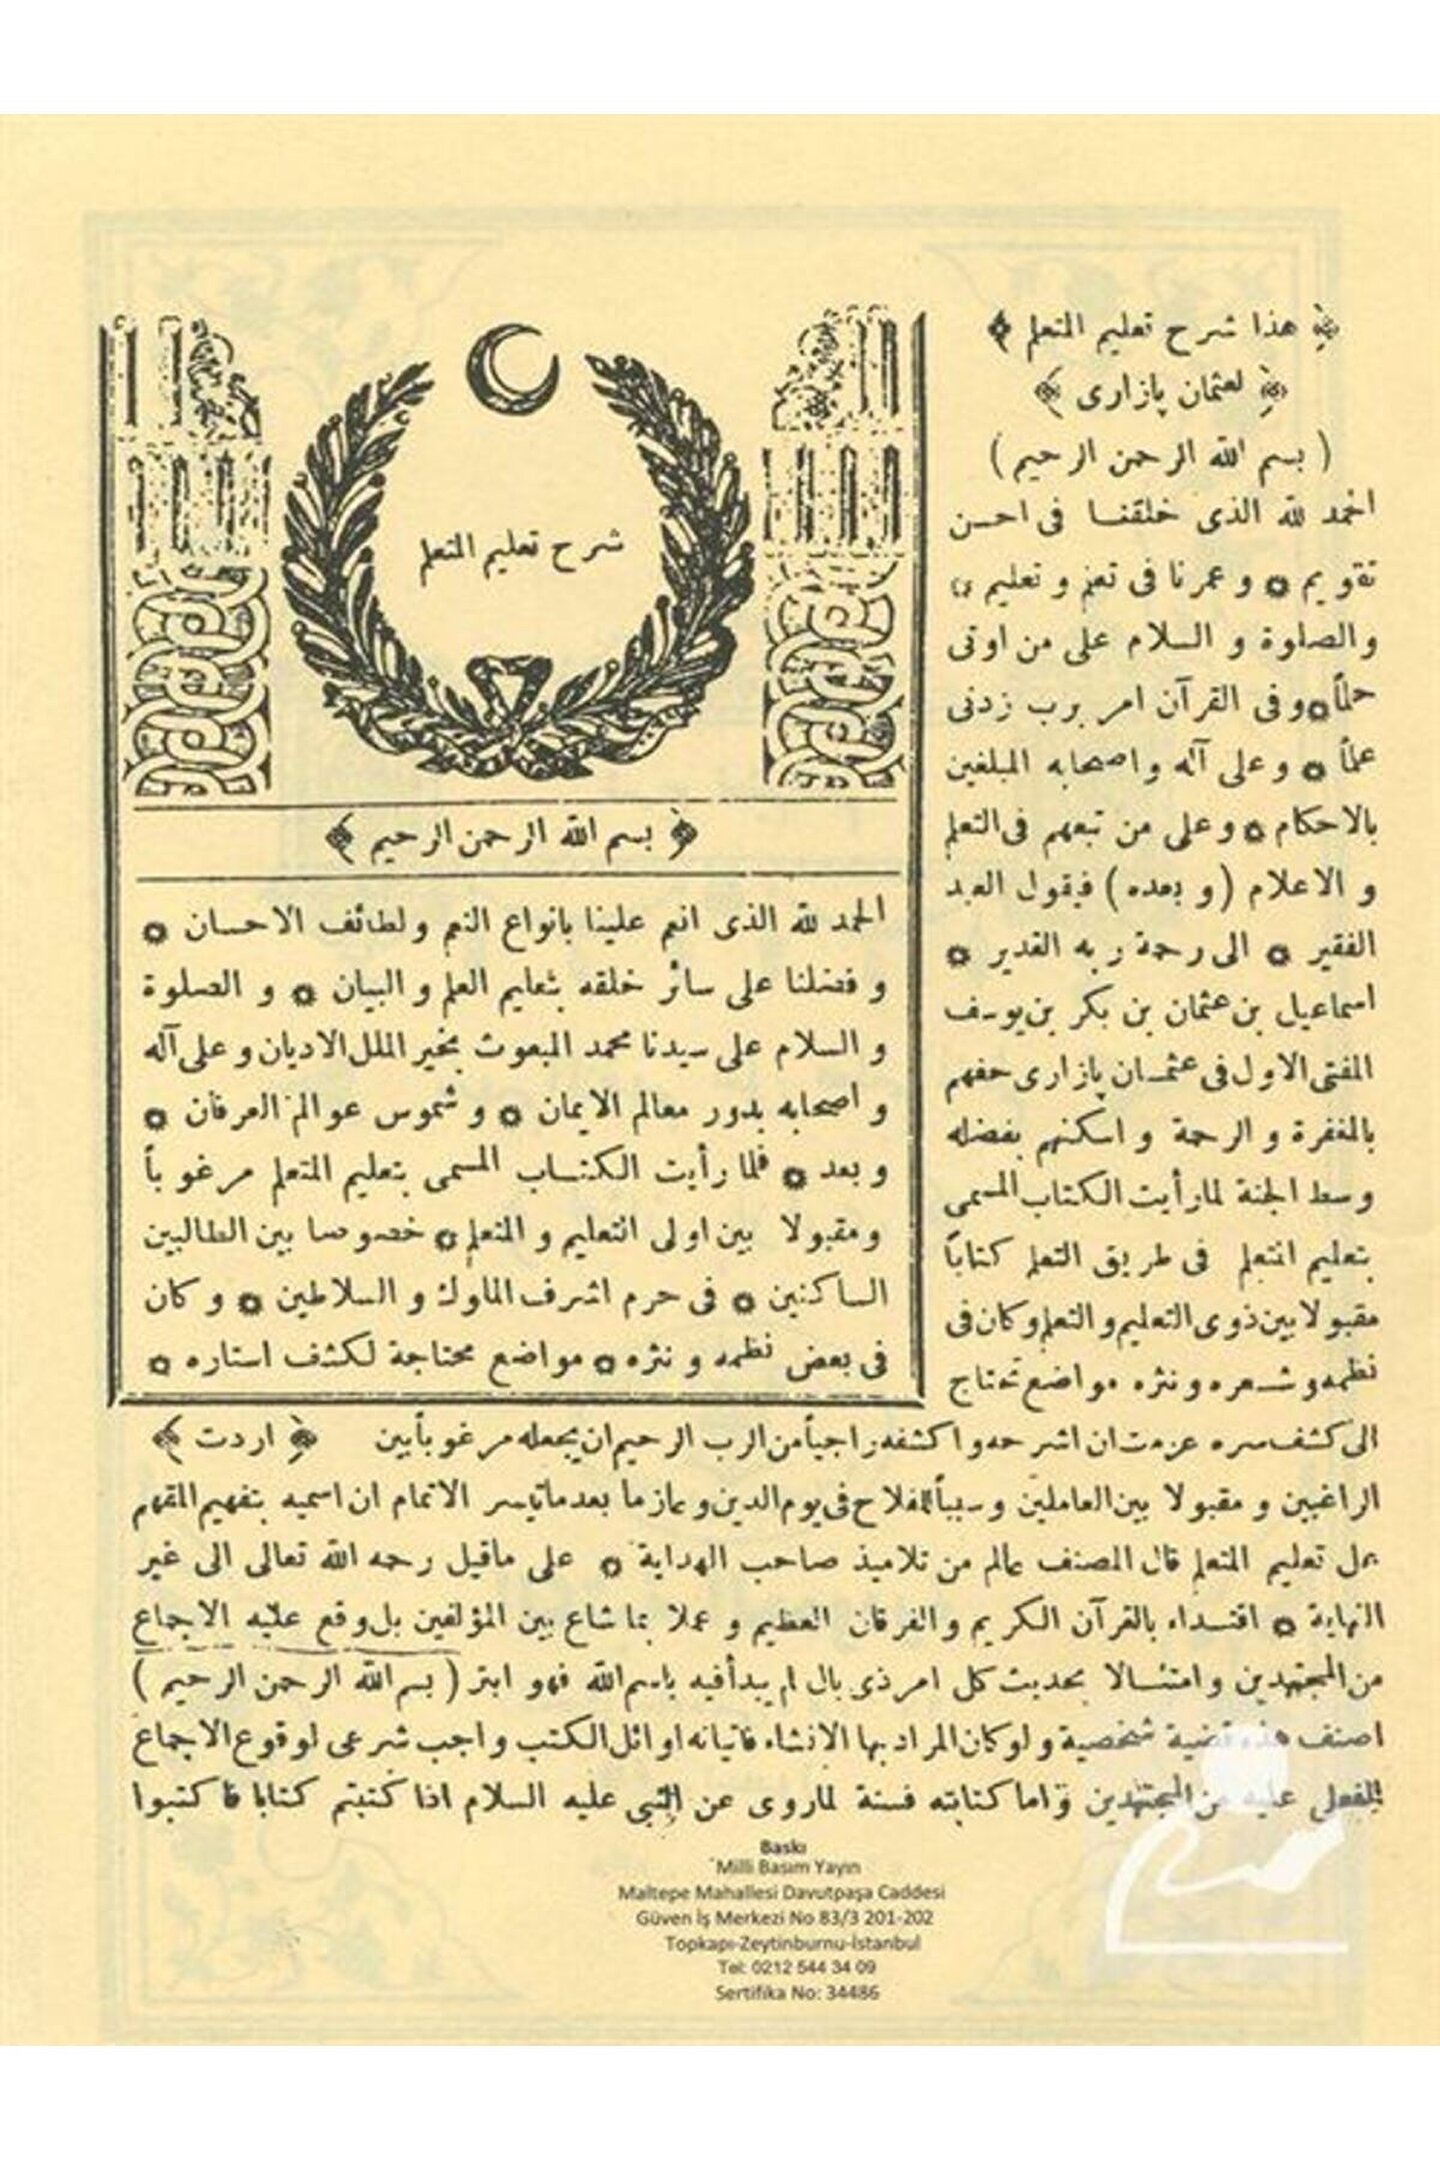 هذا شرح تعليم المتعلم
لعثمان پازارى
( بسم الله الرحمن الرحيم )
الحمد لله الذى خلقنا فى احسن
تقويم وعمرنا فى تعلم وتعليم
والصلوة والسلام على من اوتى
حلماً وفى القرآن امر برب زدنى
علماً وعلى آله واصحابه المبلغين
بالاحكام وعلى من تبعهم فى التعلم
والاعلام ( وبعده ) فيقول العبد
الفقير الى رحمة ربه القدير
اسماعيل بن عثمان بن بكر بن يوسف
المفتى الاول فى عثمان پازارى حفهم
بالمغفرة والرحمة واسكنهم بفضله
وسط الجنة لما رأيت الكتاب المسمى
بتعليم المتعلم فى طريق التعلم كتاباً
مقبولا بين ذوى التعليم والتعلم وكان فى
نظمه وشعره ونثره مواضع تحتاج
الى كشف سره عزمت ان اشرحه واكشفه راجياً من الرب الرحيم ان يجعله مرغوبا بين
الراغبين ومقبولا بين العاملين وسبباً للفلاح فى يوم الدين وعازما بعد ماتيسر الاتمام ان اسميه بتفهيم المتفهم
على تعليم المتعلم قال المصنف عالم من تلاميذ صاحب الهداية على ماقيل رحمه الله تعالى الى غير
النهاية اقتداء بالقرآن الكريم والفرقان العظيم وعملا بما شاع بين المؤلفين بل وقع عليه الاجماع
من المجتهدين وامتثالا بحديث كل امر ذى بال لم يبدأ فيه باسم الله فهو ابتر ( بسم الله الرحمن الرحيم )
اصنف هذه قضية شخصية ولو كان المراد بها الانشاء فاتيانه اوائل الكتب واجب شرعى لوقوع الاجماع
الفعلى عليه من المجتهدين واما كتابته فسنة لماروى عن النبى عليه السلام اذا كتبتم كتابا فاكتبوا
شرح تعليم المتعلم
بسم الله الرحمن الرحيم
الحمد لله الذى انعم علينا بانواع النعم ولطائف الاحسان
وفضلنا على سائر خلقه بتعليم العلم والبيان والصلوة
والسلام على سيدنا محمد المبعوث بخير الملل الاديان وعلى آله
واصحابه بدور معالم الايمان وشموس عوالم العرفان
وبعد فلما رأيت الكتاب المسمى بتعليم المتعلم مرغوباً
ومقبولا بين اولى التعليم والتعلم خصوصا بين الطالبين
الساكنين فى حرم اشرف الملوك والسلاطين وكان
فى بعض نظمه ونثره مواضع محتاجة لكشف استاره
اردت
Baskı
Milli Basım Yayın
Maltepe Mahallesi Davutpaşa Caddesi
Güven İş Merkezi No 83/3 201-202
Topkapı-Zeytinburnu-İstanbul
Tel: 0212 544 34 09
Sertifika No: 34486